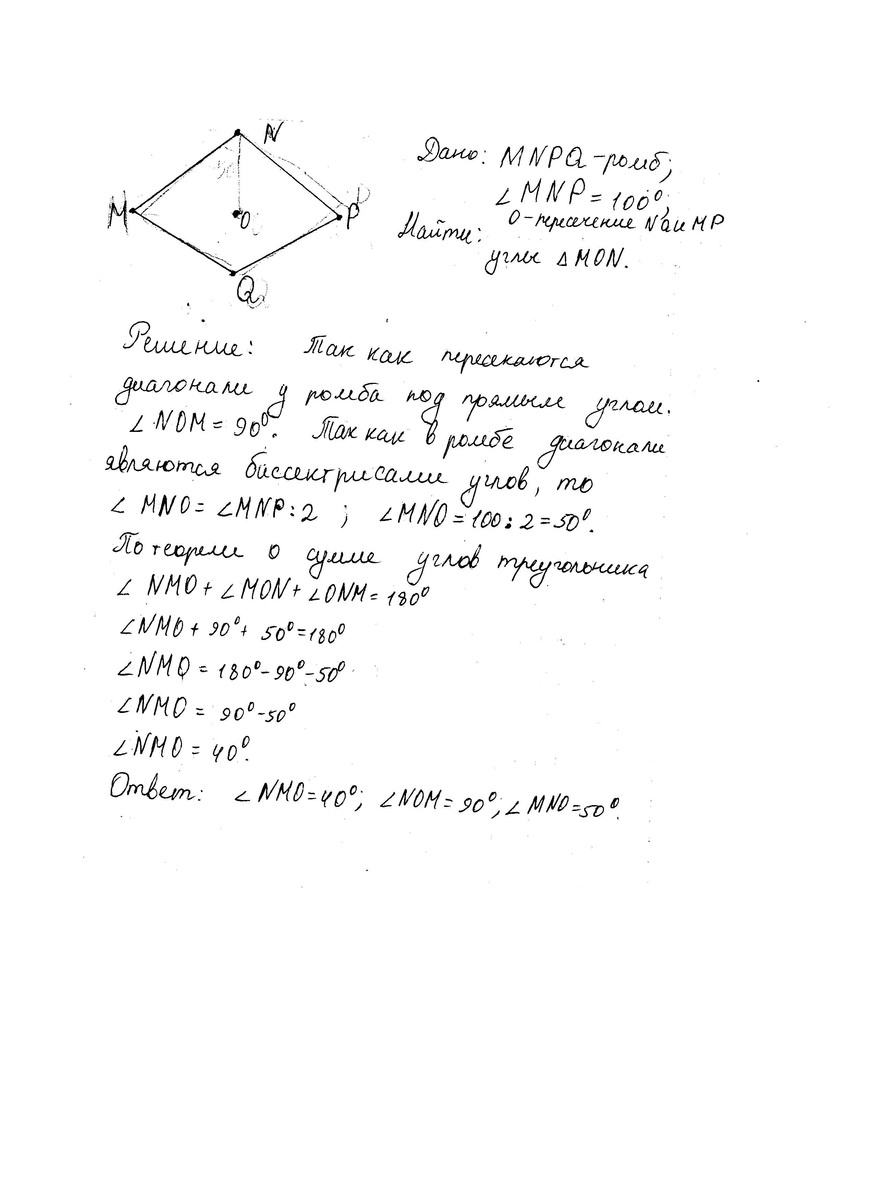 N
M
O
P
Q
Дано: MNPQ - ромб;
∠MNP = 100°;
O - пересечение NQ и MP
Найти:
углы △MON.
Решение: Так как пересекаются
диагонали у ромба под прямым углом.
∠NOM = 90°. Так как в ромбе диагонали
являются биссектрисами углов, то
∠ MNO = ∠MNP : 2 ; ∠MNO = 100 : 2 = 50°.
По теореме о сумме углов треугольника
∠ NMO + ∠MON + ∠ONM = 180°
∠NMO + 90° + 50° = 180°
∠NMO = 180° - 90° - 50°
∠NMO = 90° - 50°
∠NMO = 40°.
Ответ: ∠NMO = 40°; ∠NOM = 90°; ∠MNO = 50°.